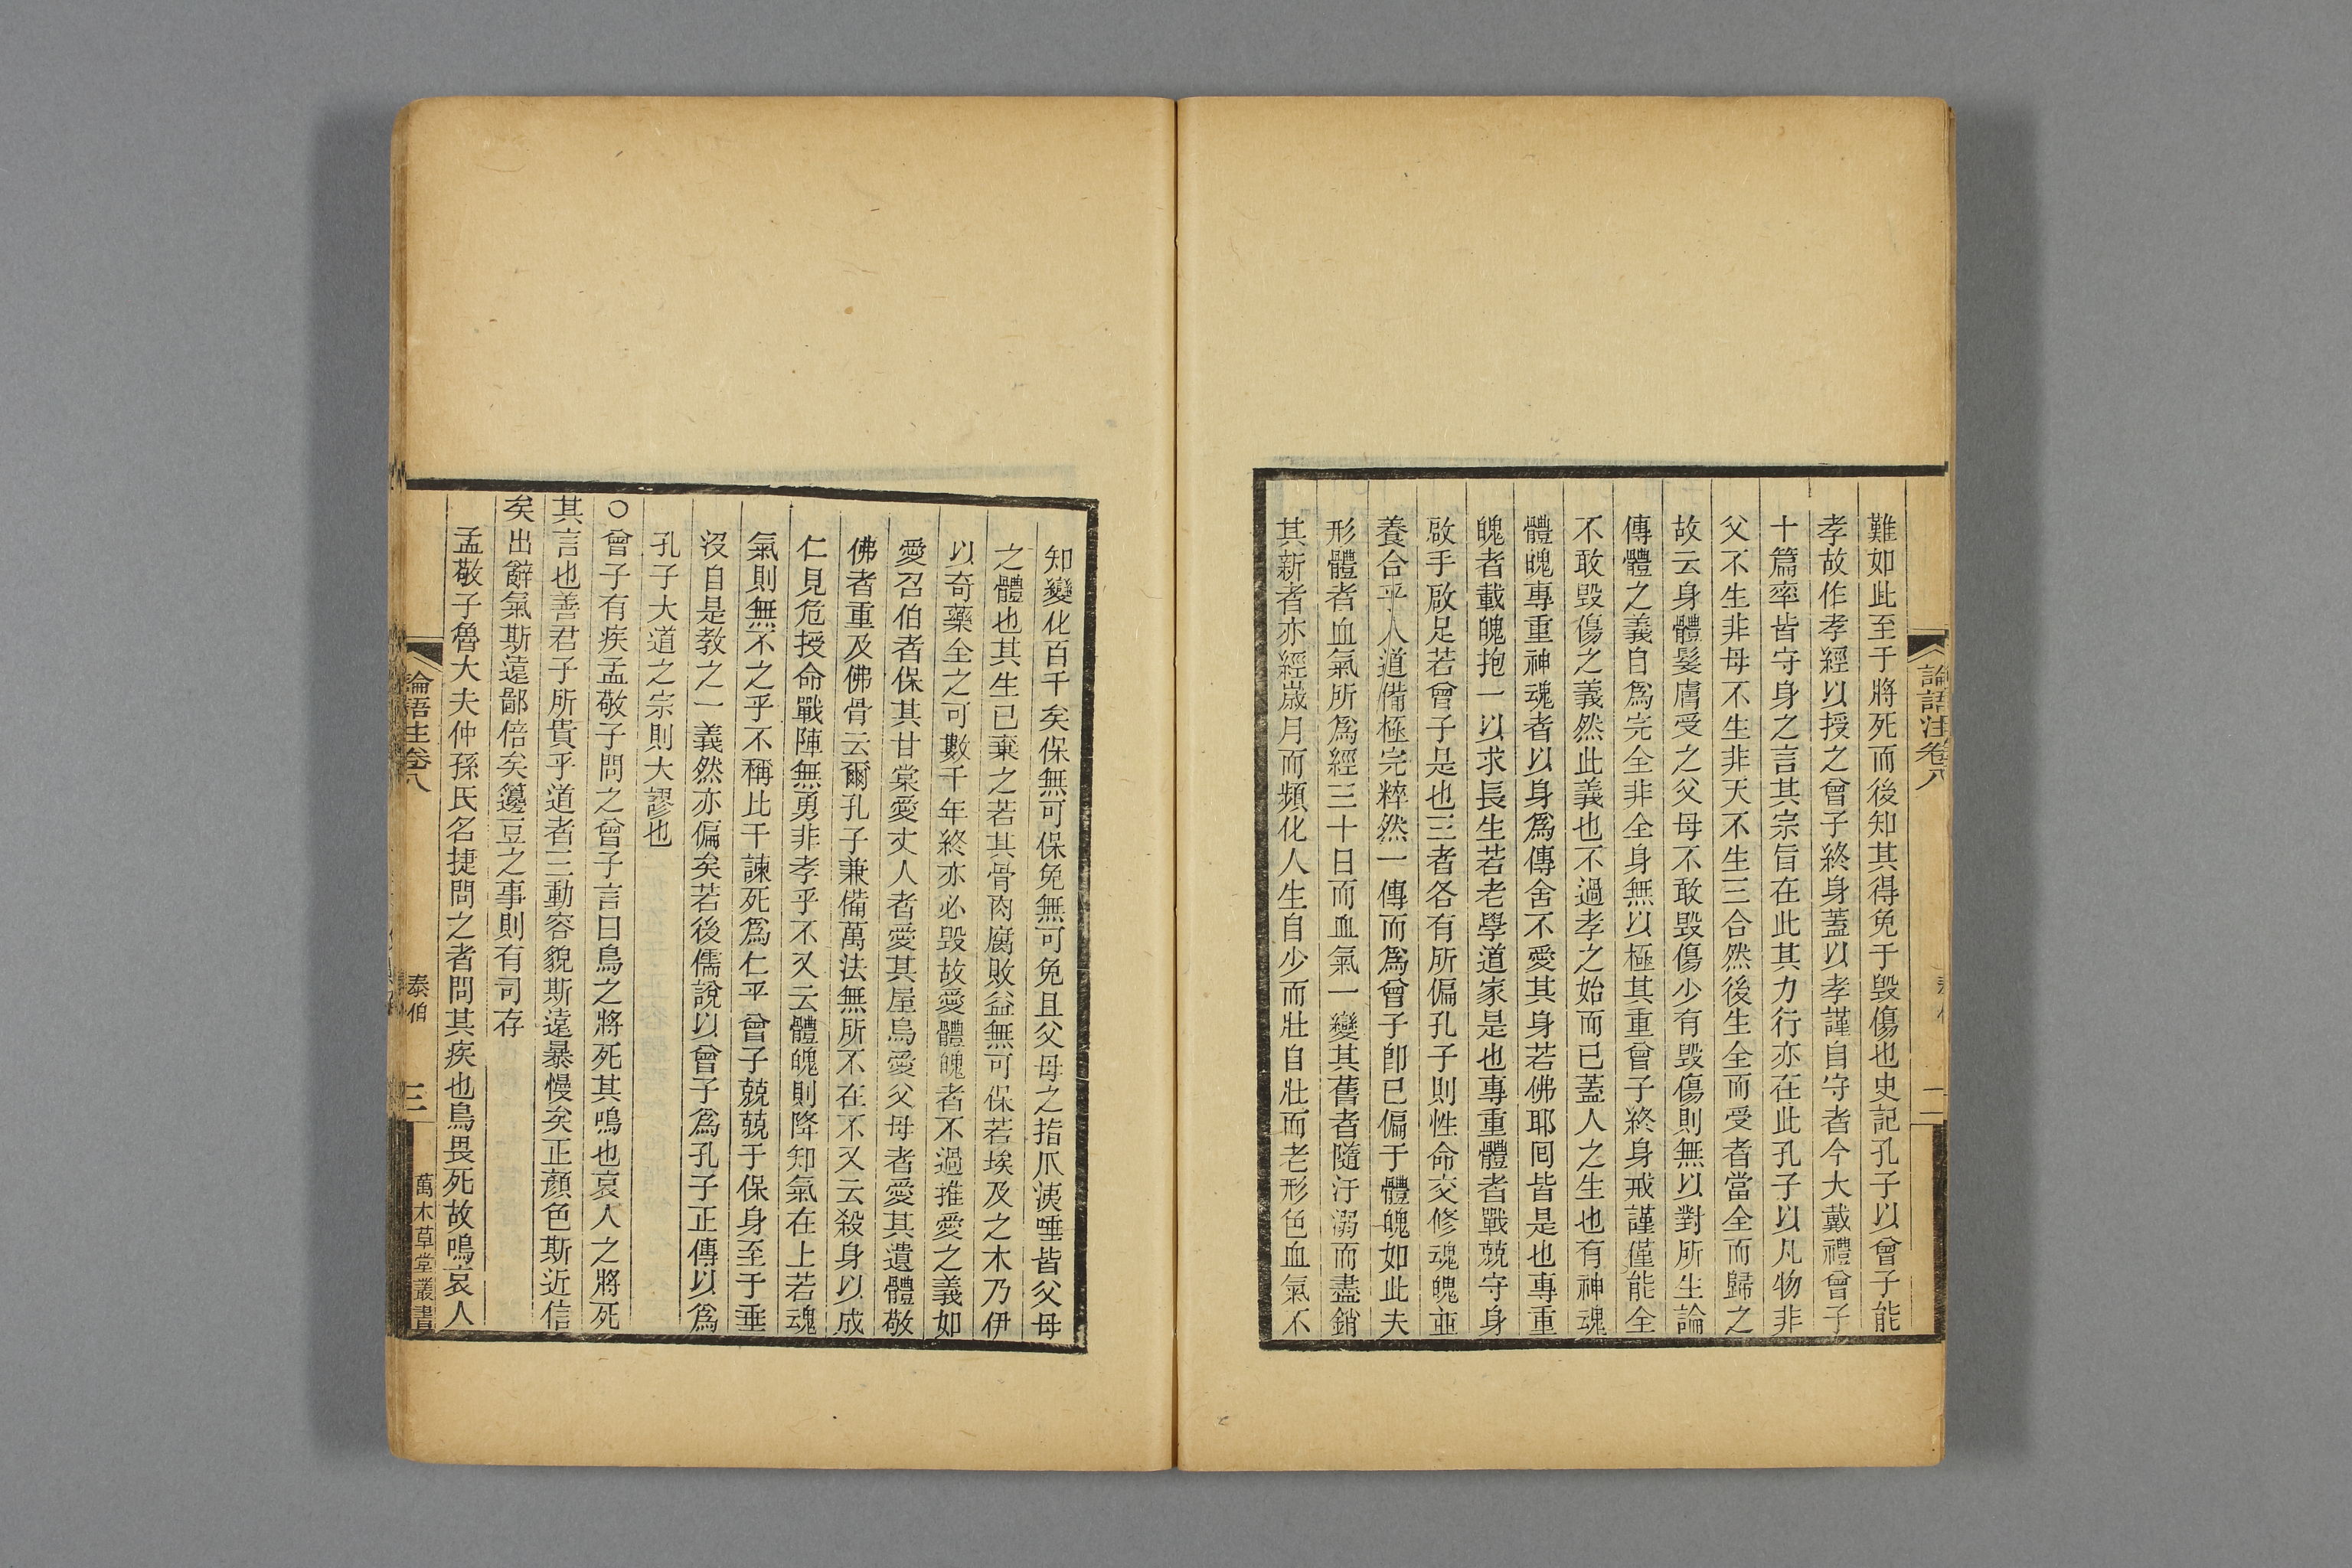 論語注卷八
二
難如此至于將死而後知其得免于毀傷也史記孔子以曾子能
孝故作孝經以授之曾子終身蓋以孝謹自守者今大戴禮曾子
十篇率皆守身之言其宗旨在此其力行亦在此孔子以凡物非
父不生非母不生非天不生三合然後生全而受者當全而歸之
故云身體髮膚受之父母不敢毀傷少有毀傷則無以對所生論
傳體之義自爲完全非全身無以極其重曾子終身戒謹僅能全
不敢毀傷之義然此義也不過孝之始而已蓋人之生也有神魂
體魄專重神魂者以身爲傳舍不愛其身若佛耶囘皆是也專重
魄者載魄抱一以求長生若老學道家是也專重體者戰兢守身
啟手啟足若曾子是也三者各有所偏孔子則性命交修魂魄並
養合乎人道備極完粹然一傳而爲曾子卽已偏于體魄如此夫
形體者血氣所爲經三十日而血氣一變其舊者隨汙溺而盡銷
其新者亦經歲月而頻化人生自少而壯自壯而老形色血氣不
知變化百千矣保無可保免無可免且父母之指爪洟唾皆父母
之體也其生已棄之若其骨肉腐敗益無可保若埃及之木乃伊
以奇藥全之可數千年終亦必毀故愛體魄者不過推愛之義如
愛召伯者保其甘棠愛丈人者愛其屋烏愛父母者愛其遺體敬
佛者重及佛骨云爾孔子兼備萬法無所不在不又云殺身以成
仁見危授命戰陣無勇非孝乎不又云體魄則降知氣在上若魂
氣則無不之乎不稱比干諫死爲仁乎曾子兢兢于保身至于垂
沒自是教之一義然亦偏矣若後儒說以曾子爲孔子正傳以爲
孔子大道之宗則大謬也
○曾子有疾孟敬子問之曾子言曰鳥之將死其鳴也哀人之將死
其言也善君子所貴乎道者三動容貌斯遠暴慢矣正顏色斯近信
矣出辭氣斯遠鄙倍矣籩豆之事則有司存
孟敬子魯大夫仲孫氏名捷問之者問其疾也鳥畏死故鳴哀人
論語注卷八
泰伯
三
萬木草堂叢書